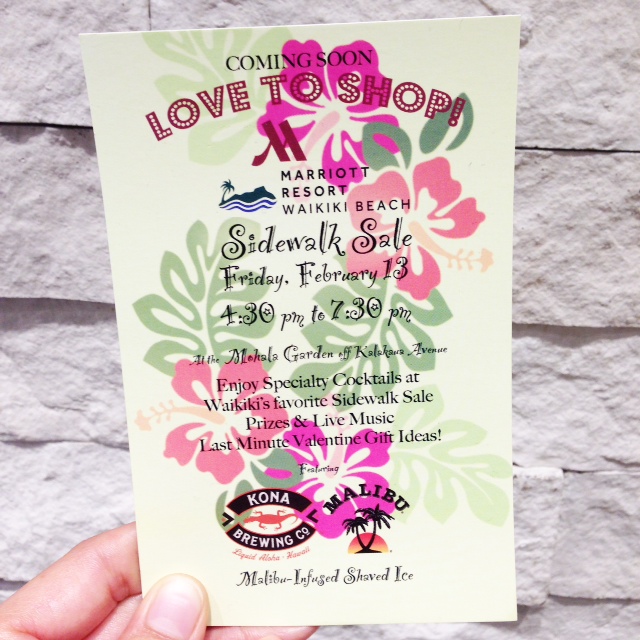 COMING SOON
LOVE TO SHOP!
MARRIOTT
RESORT
WAIKIKI BEACH
Sidewalk Sale
Friday, February 13
4:30 pm to 7:30 pm
At the Mohala Garden off Kalakaua Avenue
Enjoy Specialty Cocktails at
Waikiki's favorite Sidewalk Sale
Prizes & Live Music
Last Minute Valentine Gift Ideas!
Featuring
KONA
BREWING CO
Liquid Aloha - Hawaii
MALIBU
Malibu-Infused Shaved Ice